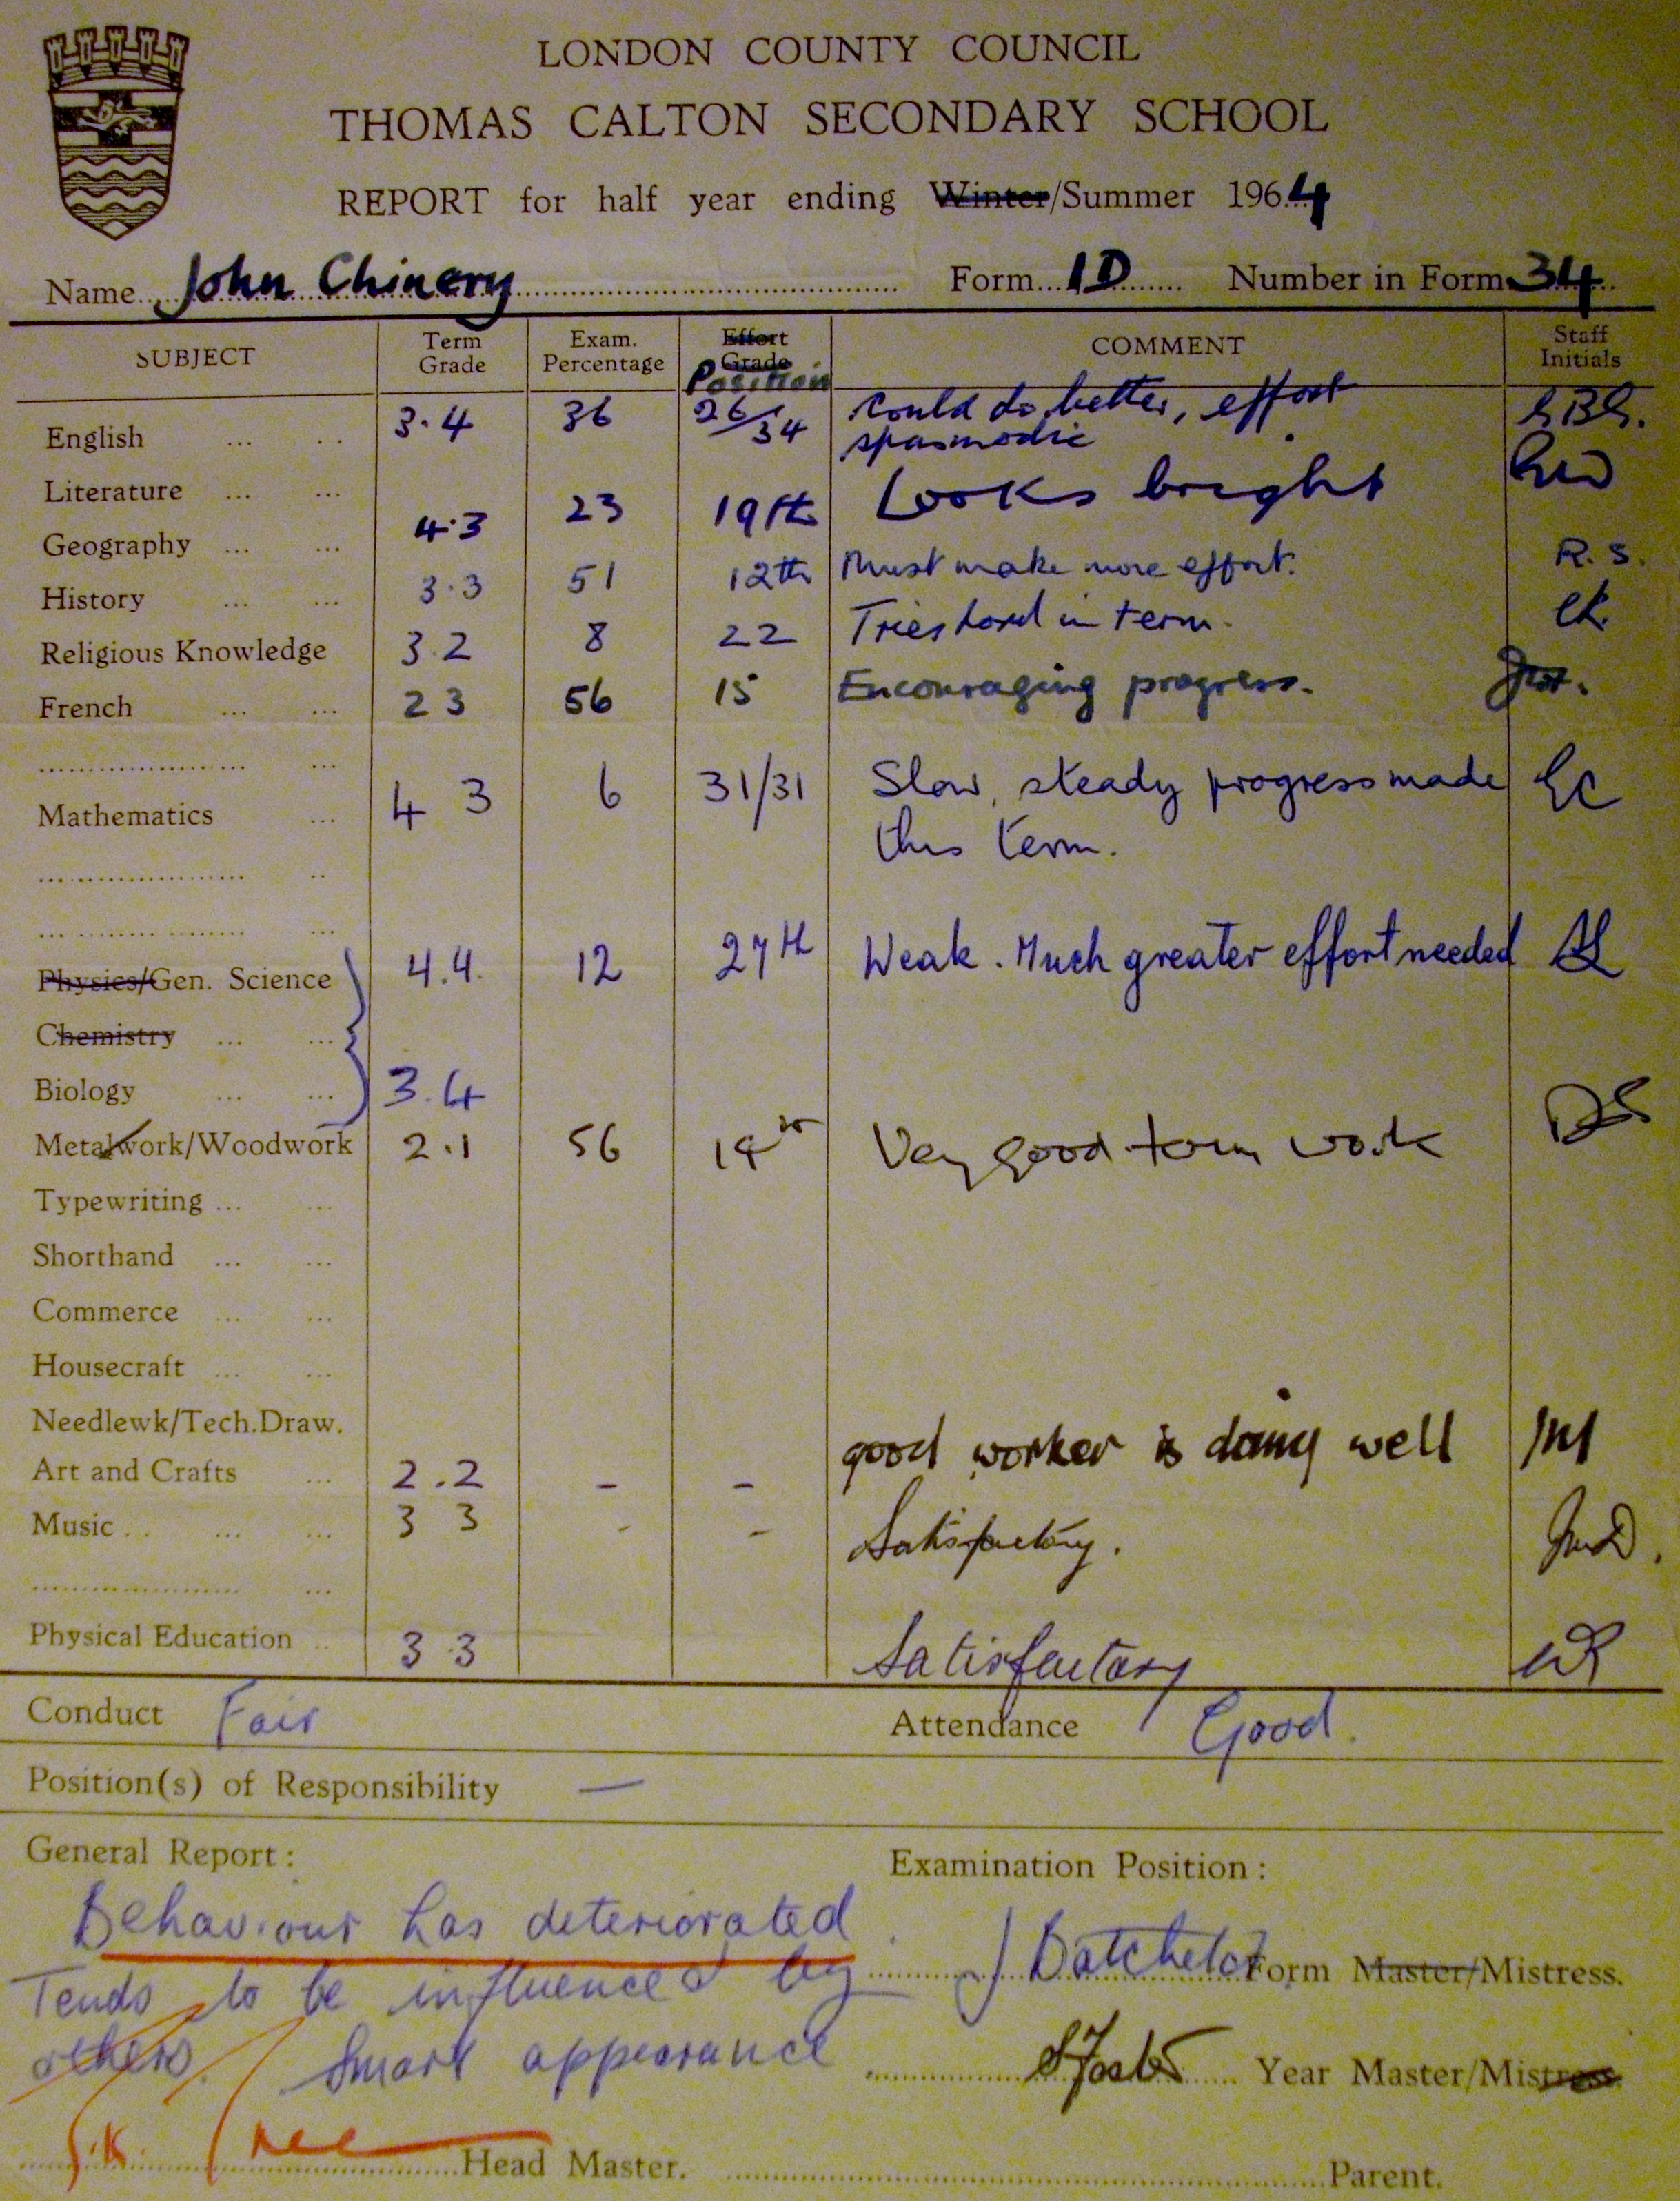 LONDON COUNTY COUNCIL
THOMAS CALTON SECONDARY SCHOOL
REPORT for half year ending Winter/Summer 1964
Name John Chinery Form 1D Number in Form 34
SUBJECT Term Grade Exam. Percentage Effort Grade Position COMMENT Staff Initials
English 3.4 36 26/34 Could do better, effort spasmodic
Literature
Geography 4.3 23 19th Looks bright
History 3.3 51 12th Must make more effort. R.S.
Religious Knowledge 3 2 8 22 Tries hard in term. CK.
French 2 3 56 15 Encouraging progress.
Mathematics 4 3 6 31/31 Slow, steady progress made
this term.
Physics/Gen. Science 4.4. 12 27th Weak. Much greater effort needed
Chemistry
Biology 3.4
Metalwork/Woodwork 2.1 56 Very good term work DS
Typewriting
Shorthand
Commerce
Housecraft
Needlewk/Tech.Draw.
Art and Crafts 2.2 - - good worker is doing well
Music 3 3 - - Satisfactory.
Physical Education 3 3 Satisfactory
Conduct Fair Attendance Good.
Position(s) of Responsibility —
General Report: Examination Position:
Behaviour has deteriorated.
J Batchelor Form Master/Mistress.
Tends to be influenced by
others. Smart appearance
S Foster Year Master/Mistress
Head Master. Parent.